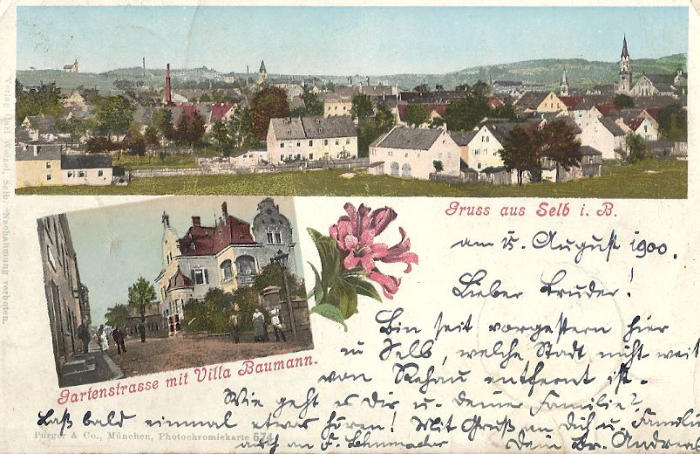 Gruss aus Selb i. B.
am 5. August 1900.
Lieber Bruder!
Bin seit vorgestern hier
in Selb, welche Stadt nicht weit
von Rehau entfernt ist.
Gartenstrasse mit Villa Baumann.
Wie geht es Dir u. deiner Familie?
Laß bald einmal etwas hören! Mit Gruß an Dich u. Familie
auch an F. Dein Br. Andreas
Purger & Co., München, Photochromiekarte 574
Verlag Carl Wetzel, Selb. Nachahmung verboten.